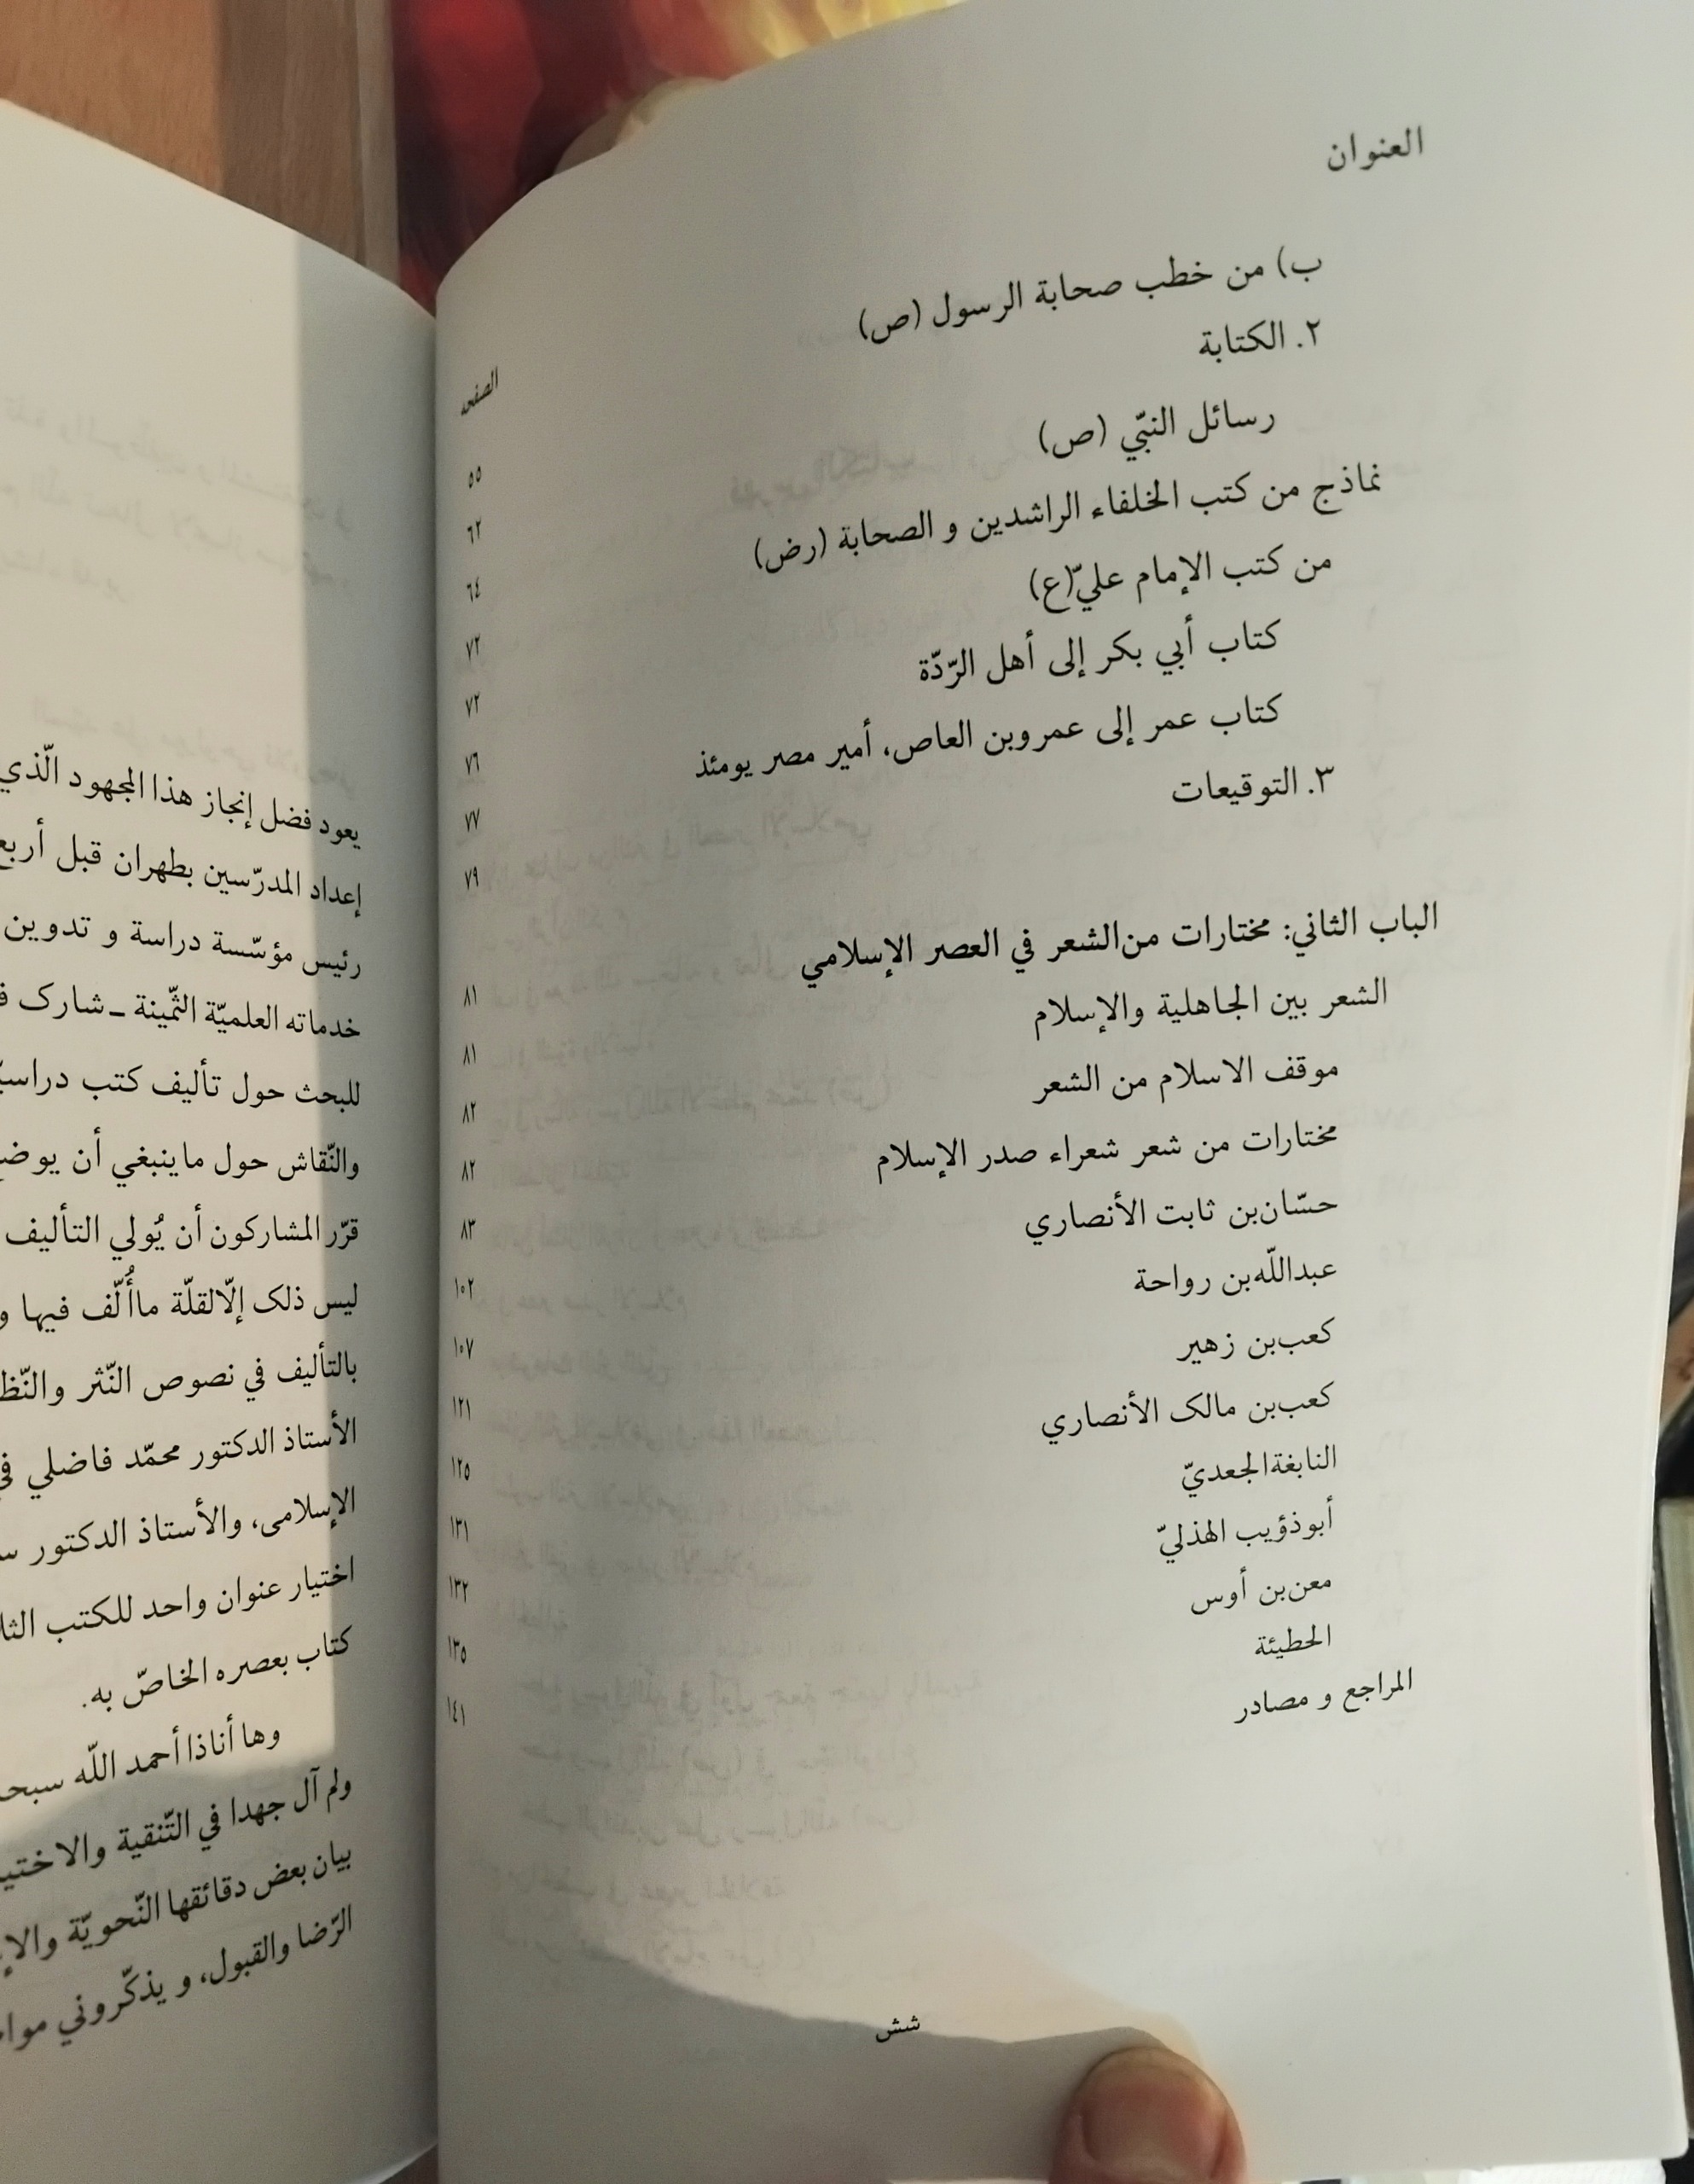 العنوان الصفحه
ب) من خطب صحابة الرسول (ص) ٥٥
٢. الكتابة ٦٢
رسائل النبّي (ص) ٦٤
نماذج من كتب الخلفاء الراشدين و الصحابة (رض) ٧٢
من كتب الإمام عليّ(ع) ٧٢
كتاب أبي بكر إلى أهل الرّدّة ٧٦
كتاب عمر إلى عمروبن العاص، أمير مصر يومئذ ٧٧
٣. التوقيعات ٧٩
الباب الثاني: مختارات من‌الشعر في العصر الإسلامي ٨١
الشعر بين الجاهلية والإسلام ٨١
موقف الاسلام من الشعر ٨٢
مختارات من شعر شعراء صدر الإسلام ٨٢
حسّان‌بن ثابت الأنصاري ٨٣
عبداللّه‌بن رواحة ١٠٢
كعب‌بن زهير ١٠٧
كعب‌بن مالک الأنصاري ١٢١
النابغةالجعديّ ١٢٥
أبوذؤيب الهذليّ ١٣١
معن‌بن أوس ١٣٢
الحطيئة ١٣٥
المراجع و مصادر ١٤١
شش
يعود فضل إنجاز هذا المجهود الّذي
إعداد المدرّسين بطهران قبل
رئيس مؤسّسة دراسة و تدوين
خدماته العلميّة الثّمينة ـ شارک
للبحث حول تأليف كتب
والنّقاش حول ماينبغي أن
قرّر المشاركون أن يُولي التأليف
ليس ذلک إلّالقلّة ماأُلّف فيها
بالتأليف في نصوص النّثر
الأستاذ الدكتور محمّد فاضلي
الإسلامى، والأستاذ الدكتور
اختيار عنوان واحد للكتب
كتاب بعصره الخاصّ به.
وها أناذا أحمد اللّه
ولم آل جهدا في التّنقية
بيان بعض دقائقها النّحويّة
الرّضا والقبول، و يذكّروني